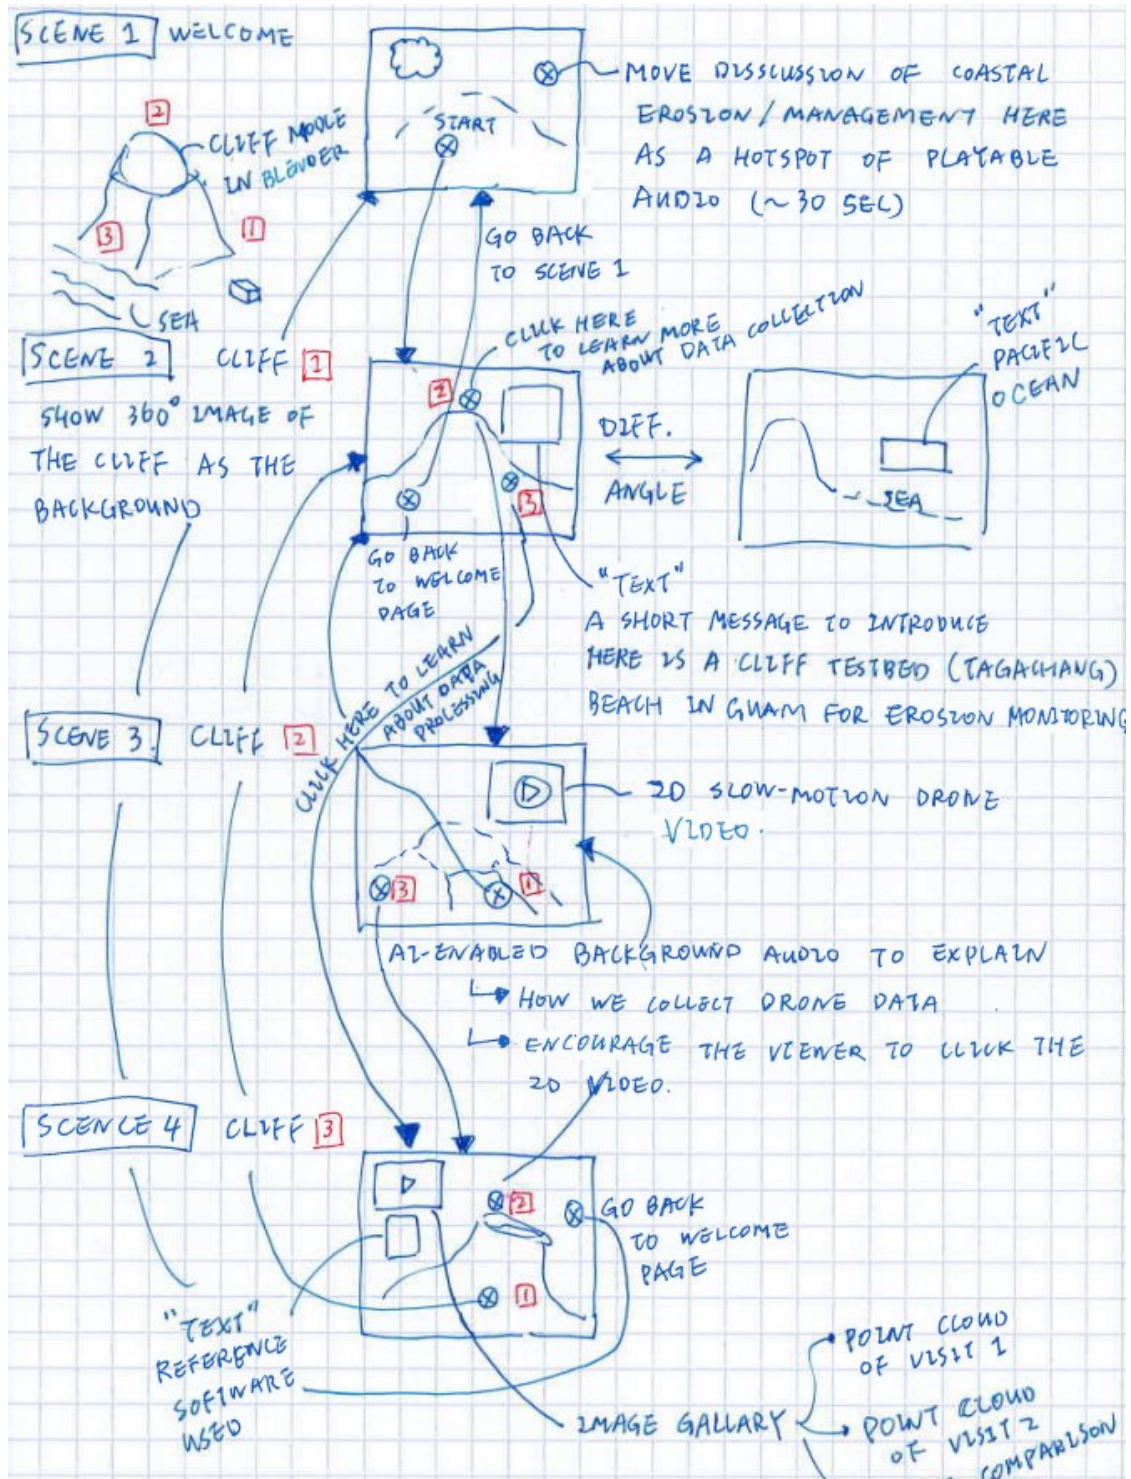 SCENE 1 WELCOME
2
CLIFF MODLE
IN BLENDER
3
1
SEA
START
MOVE DISSCUSSION OF COASTAL
EROSION/MANAGEMENT HERE
AS A HOTSPOT OF PLAYABLE
AUDIO (~30 SEC)
GO BACK
TO SCENE 1
SCENE 2 CLIFF 1
SHOW 360° IMAGE OF
THE CLIFF AS THE
BACKGROUND
CLICK HERE
TO LEARN MORE
ABOUT DATA COLLECTION
2
3
DIFF.
ANGLE
"TEXT"
PACIFIC
OCEAN
SEA
GO BACK
TO WELCOME
PAGE
"TEXT"
A SHORT MESSAGE TO INTRODUCE
HERE IS A CLIFF TESTBED (TAGACHANG)
BEACH IN GUAM FOR EROSION MONITORING
CLICK HERE TO LEARN
ABOUT DATA
PROCESSING
SCENE 3. CLIFF 2
2D SLOW-MOTION DRONE
VIDEO.
3
1
AI-ENABLED BACKGROUND AUDIO TO EXPLAIN
HOW WE COLLECT DRONE DATA
ENCOURAGE THE VIEWER TO CLICK THE
2D VIDEO.
SCENCE 4 CLIFF 3
2
1
GO BACK
TO WELCOME
PAGE
"TEXT"
REFERENCE
SOFTWARE
USED
IMAGE GALLARY
POINT CLOUD
OF VISIT 1
POINT CLOUD
OF VISIT 2
COMPARISON